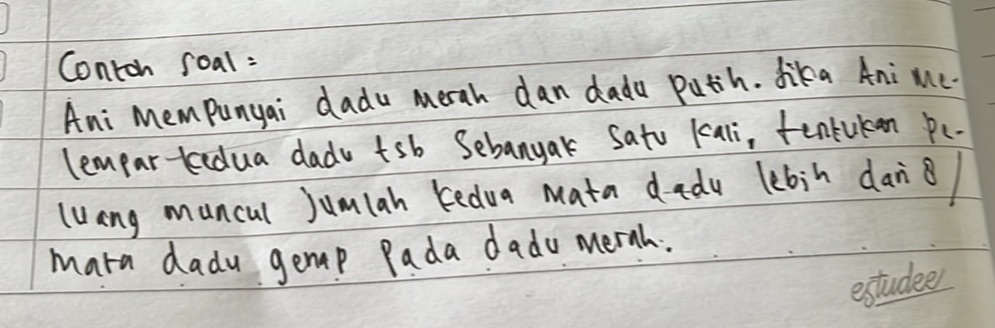 Contoh soal :
Ani mempunyai dadu merah dan dadu putih. Jika Ani me-
lempar kedua dadu tsb sebanyak satu kali, tentukan pe-
luang muncul jumlah kedua mata dadu lebih dari 8 /
mata dadu genap pada dadu merah.
estudee